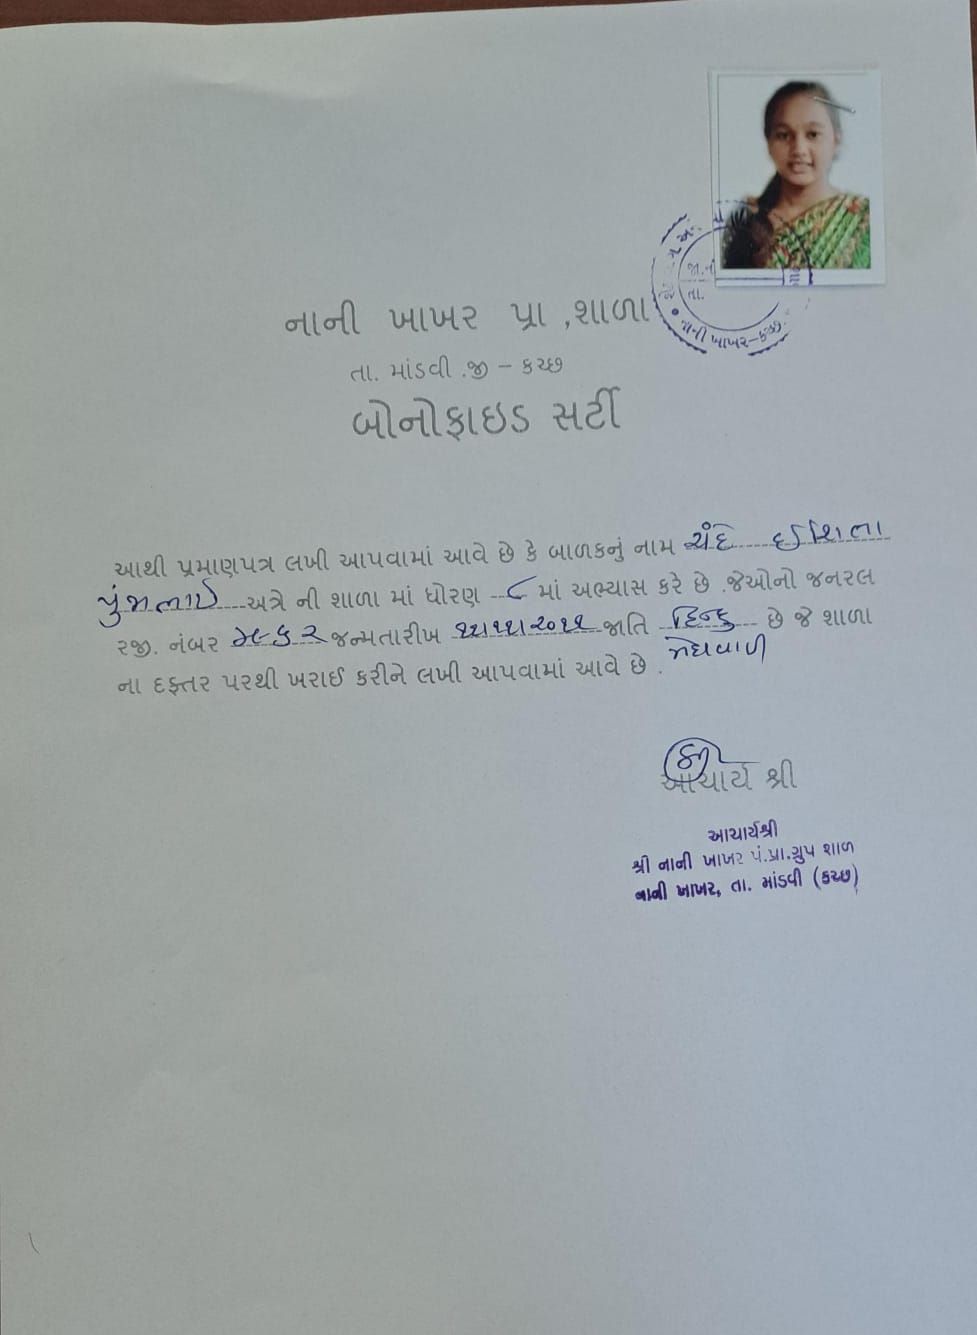 નાની ખાખર પ્રા ,શાળા
તા. માંડવી .જી – કચ્છ
બોનોફાઇડ સર્ટી
આથી પ્રમાણપત્ર લખી આપવામાં આવે છે કે બાળકનું નામ
અત્રે ની શાળા માં ધોરણ ૮ માં અભ્યાસ કરે છે .જેઓનો જનરલ
રજી. નંબર જન્મતારીખ જાતિ હિન્દુ છે જે શાળા
મેઘવાળ
ના દફ્તર પરથી ખરાઈ કરીને લખી આપવામાં આવે છે .
આચાર્ય શ્રી
આચાર્યશ્રી
શ્રી નાની ખાખર પં.પ્રા.ગ્રુપ શાળ
નાની ખાખર, તા. માંડવી (કચ્છ)
નાની ખાખર-કચ્છ.